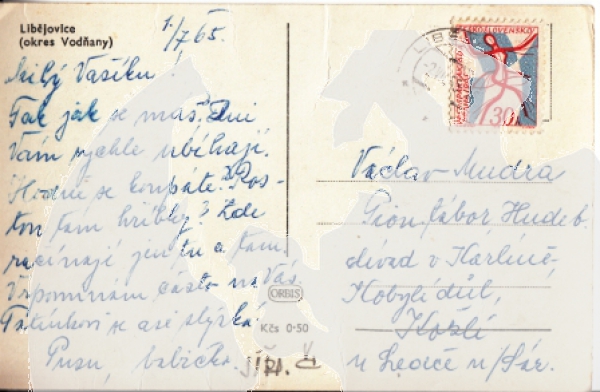 Libějovice
(okres Vodňany)
1/7 65.
Milý Vašíku!
Tak jak se máš? Dni
Vám rychle ubíhají.
Hodně se koupáte? Ros-
tou tam hřibky? Zde
začínají jen tu a tam.
Vzpomínám často na Vás.
Tatínkovi se asi stýská.
Pusu, babička.
ORBIS
Kčs 0·50
ČESKOSLOVENSKO
30
Václav Mudra
Pion. tábor Hudeb.
divad. v Karlíně,
Kobylí důl,
Kožlí
u Ledče n/Sáz.